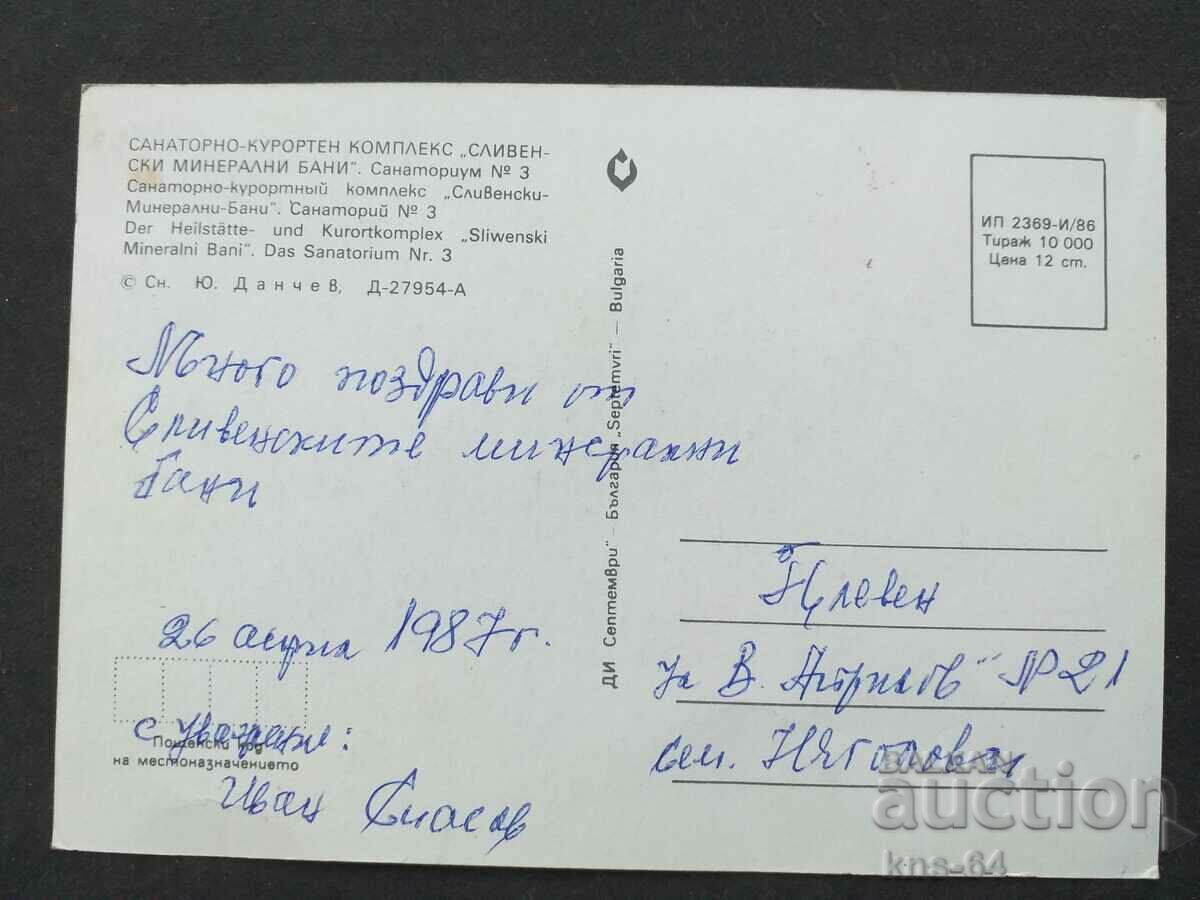 САНАТОРНО-КУРОРТЕН КОМПЛЕКС „СЛИВЕН-
СКИ МИНЕРАЛНИ БАНИ". Санаториум № 3
Санаторно-курортный комплекс „Сливенски-
Минерални-Бани". Санаторий № 3
Der Heilstätte- und Kurortkomplex „Sliwenski
Mineralni Bani". Das Sanatorium Nr. 3
© Сн. Ю. Данчев, Д-27954-А
Много поздрави от
Сливенските минерални
бани
26 април 1987 г.
с уважение:
Пощенски код
на местоназначението
Иван Спасов
ДИ Септември" – България „Septemvri" – Bulgaria
ИП 2369-И/86
Тираж 10 000
Цена 12 ст.
Плевен
ул В. " № 21
сем.
BALKAN
auction
kns-64